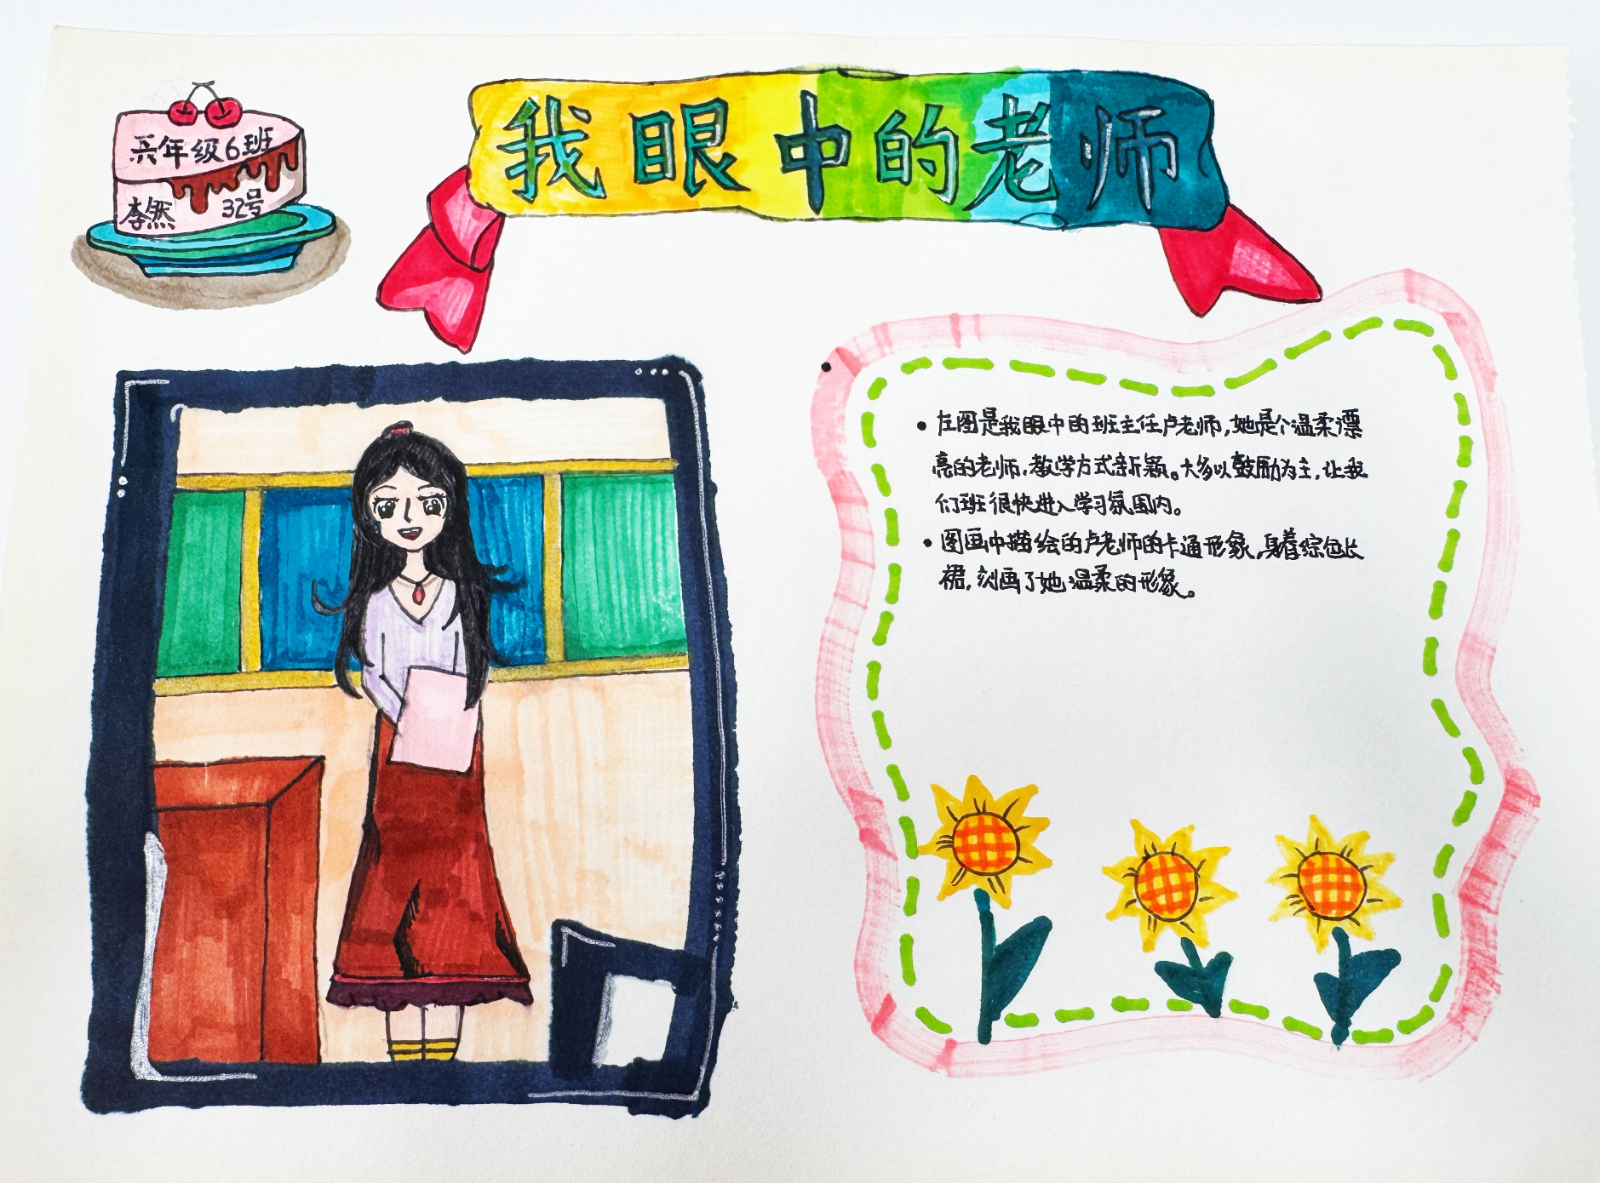 六年级6班
李然 32号
我眼中的老师
• 左图是我眼中的班主任卢老师,她是个温柔漂
亮的老师,教学方式新颖。大多以鼓励为主,让我
们班很快进入学习氛围内。
• 图画中描绘的卢老师的卡通形象,身着综色长
裙,刻画了她温柔的形象。